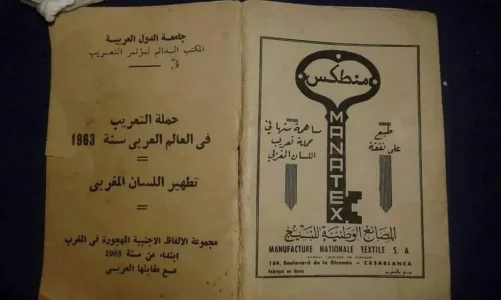 منطكس
MANATEX
طبع
على نفقة
ساهمة منها في
حملة تعريب
اللسان المغربي
المصانع الوطنية للنسيج
MANUFACTURE NATIONALE TEXTILE S. A
164, Boulevard de la Gironde — CASABLANCA
Fabriqué au
جامعة الدول العربية
المكتب الدائم لمؤتمر التعريب
حملة التعريب
فى العالم العربى سنة 1963
=
تطهير اللسان المغربى
=
مجموعة الالفاظ الاجنبية المهجورة فى المغرب
ابتداء من سنة 1963
مع مقابلها العربى